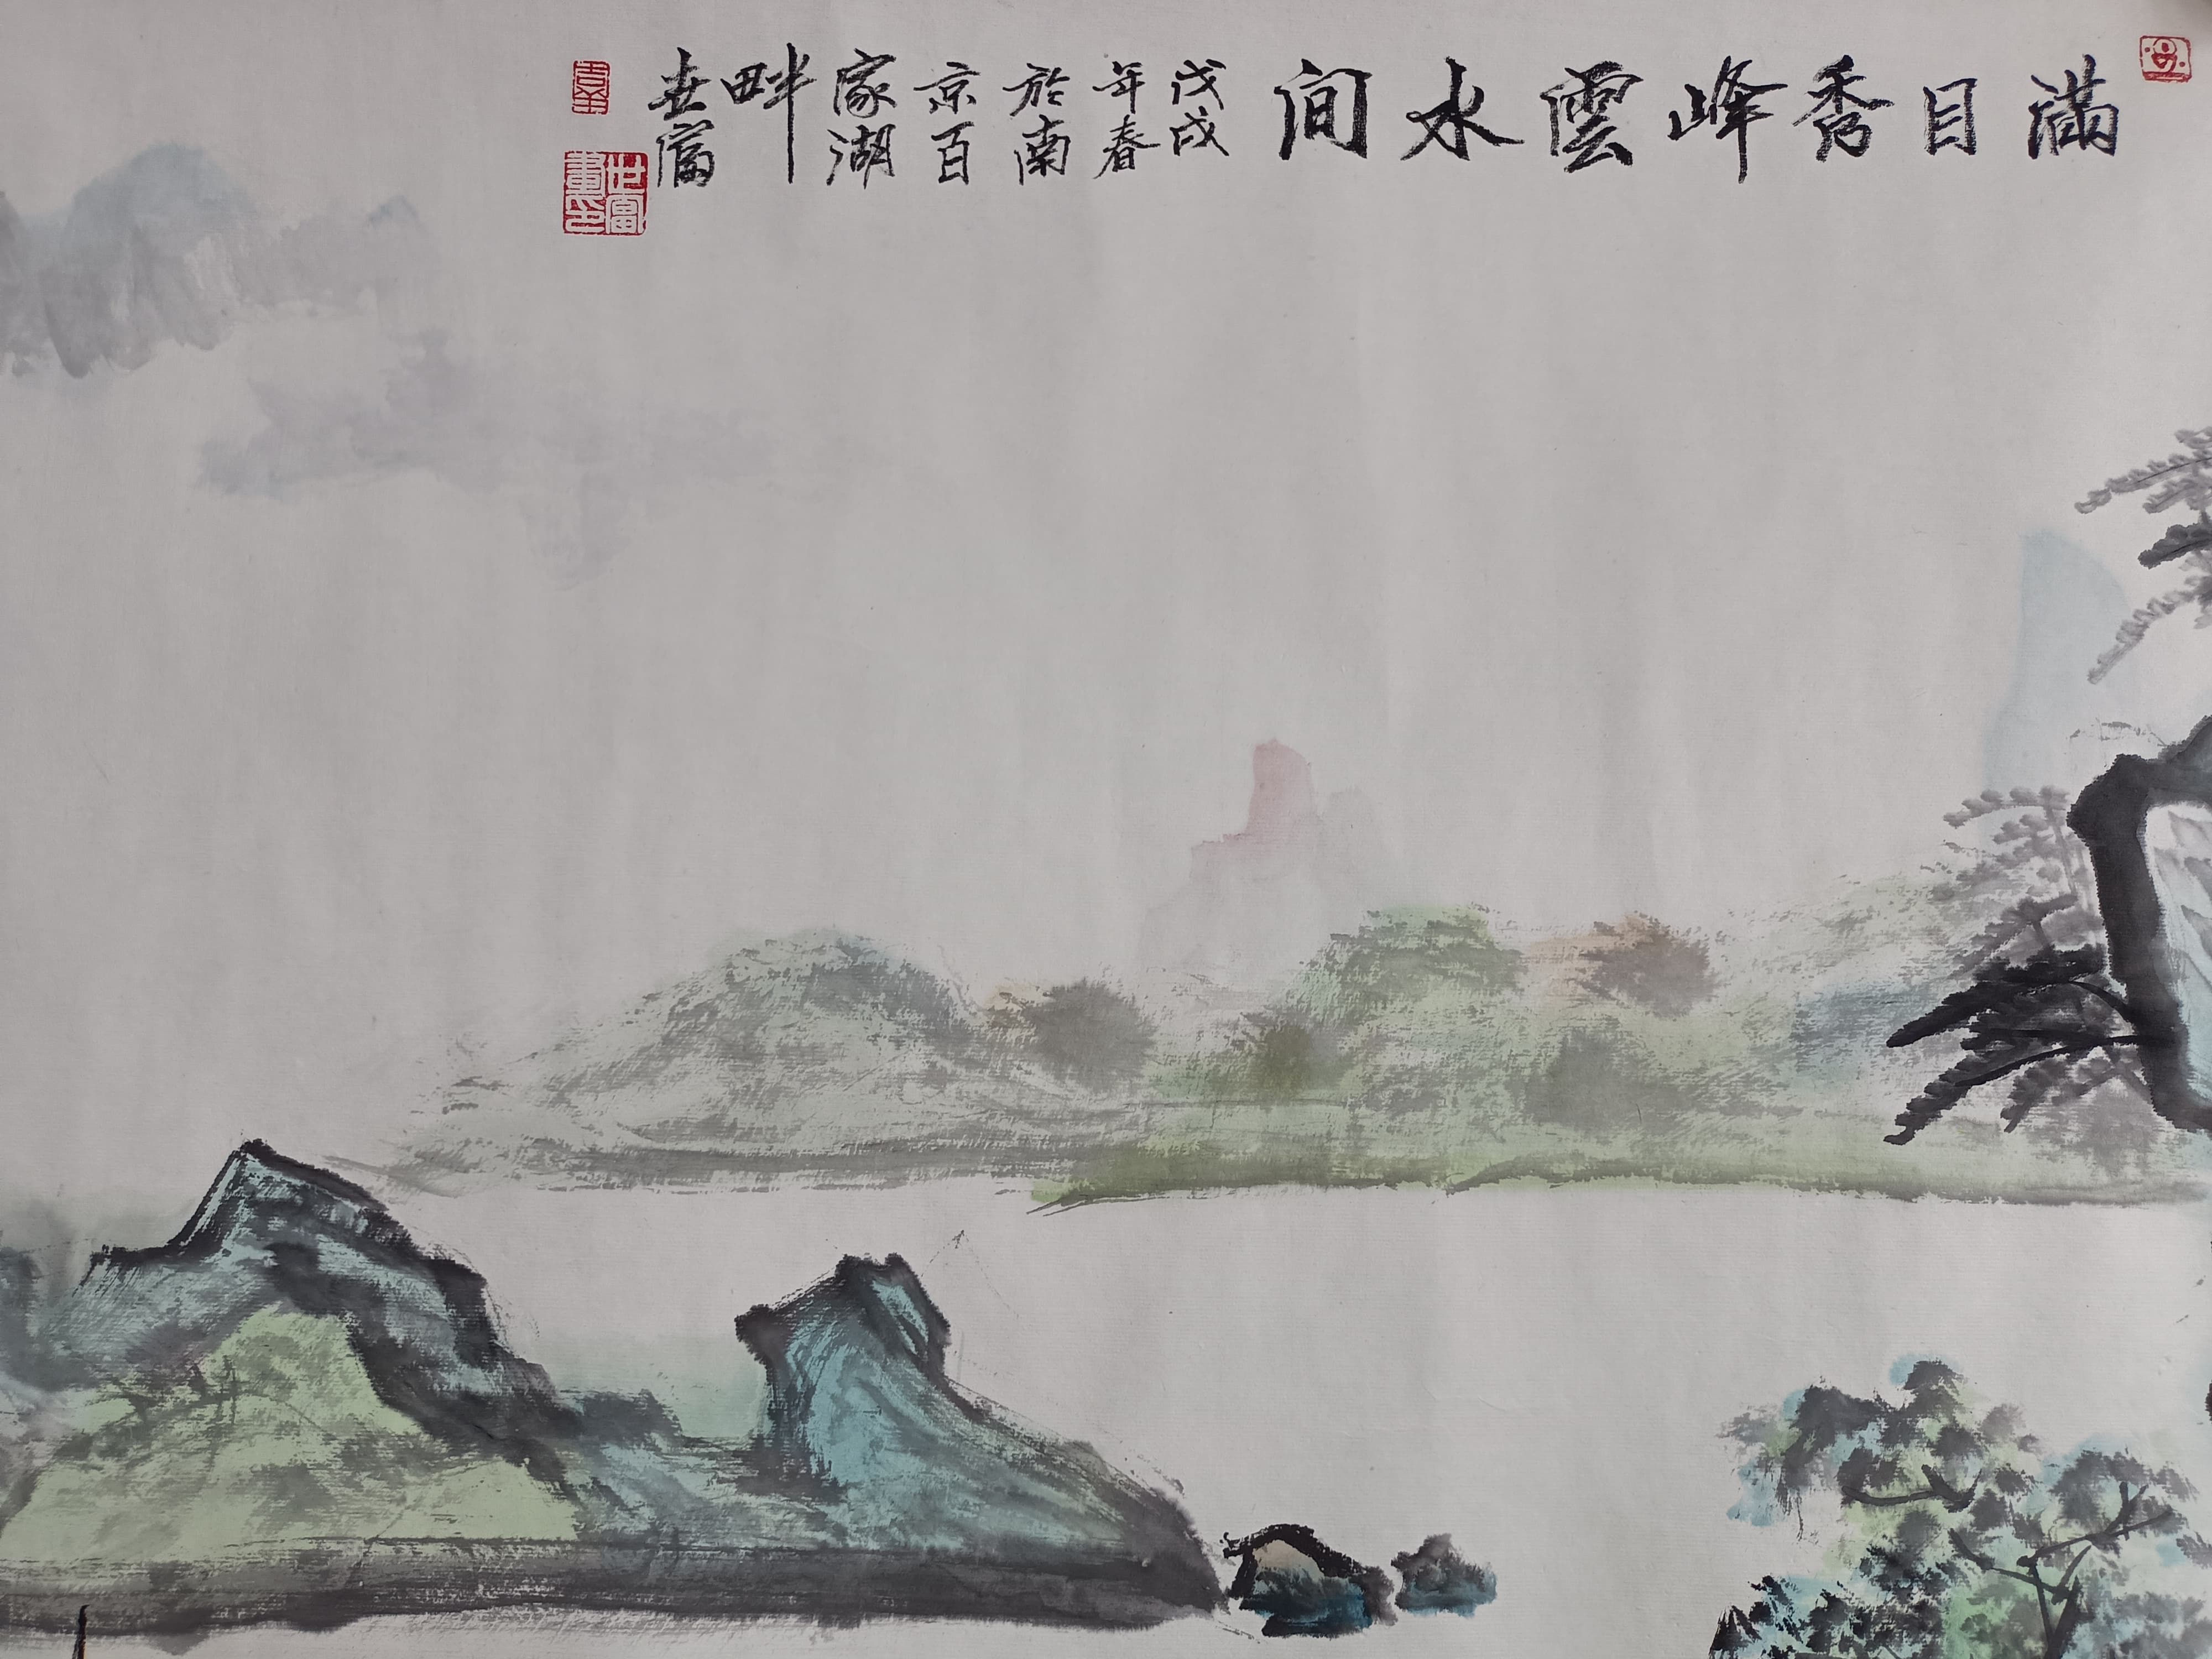 滿目秀峰雲水间
戊戌
年春
於南
京百
家湖
畔
世富
世富
畫印